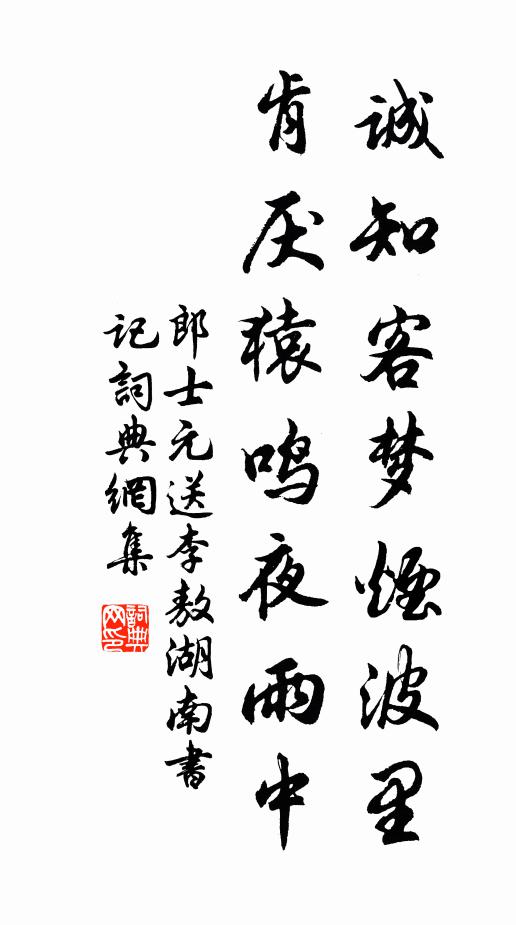 誠知客梦煙波里
肯厌猿鸣夜雨中
郎士元送李敖湖南書
記詞典網集
詞典
网印